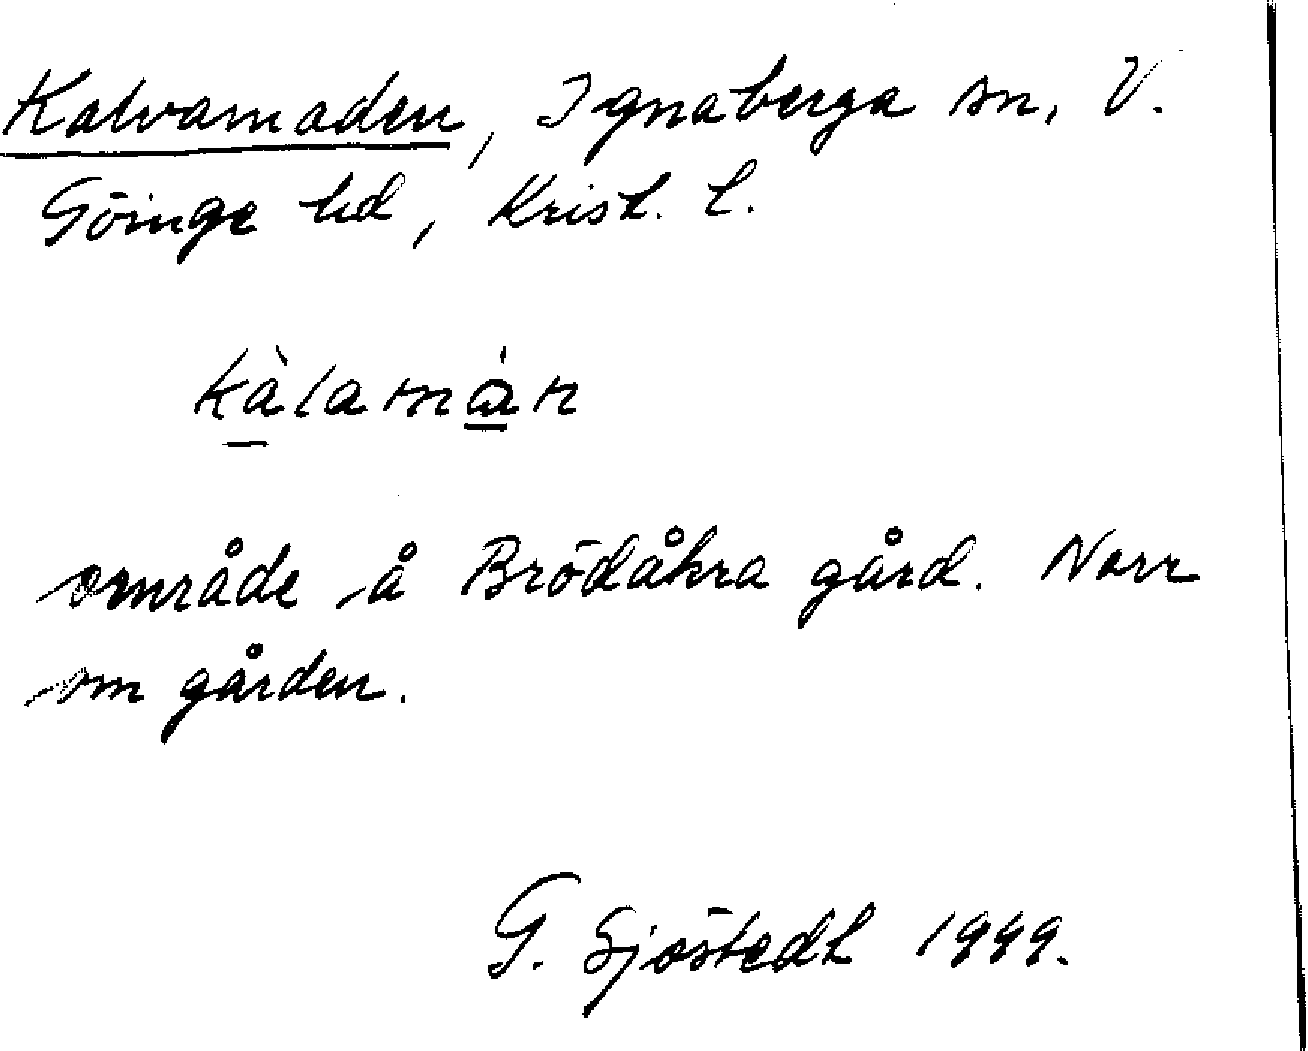 Kalvamaden, Ignaberga sn, V.
Göinge hd, Krist. l.
kàlamán
område å Brödåkra gård. Norr
om gården.
G. Sjöstedt 1949.